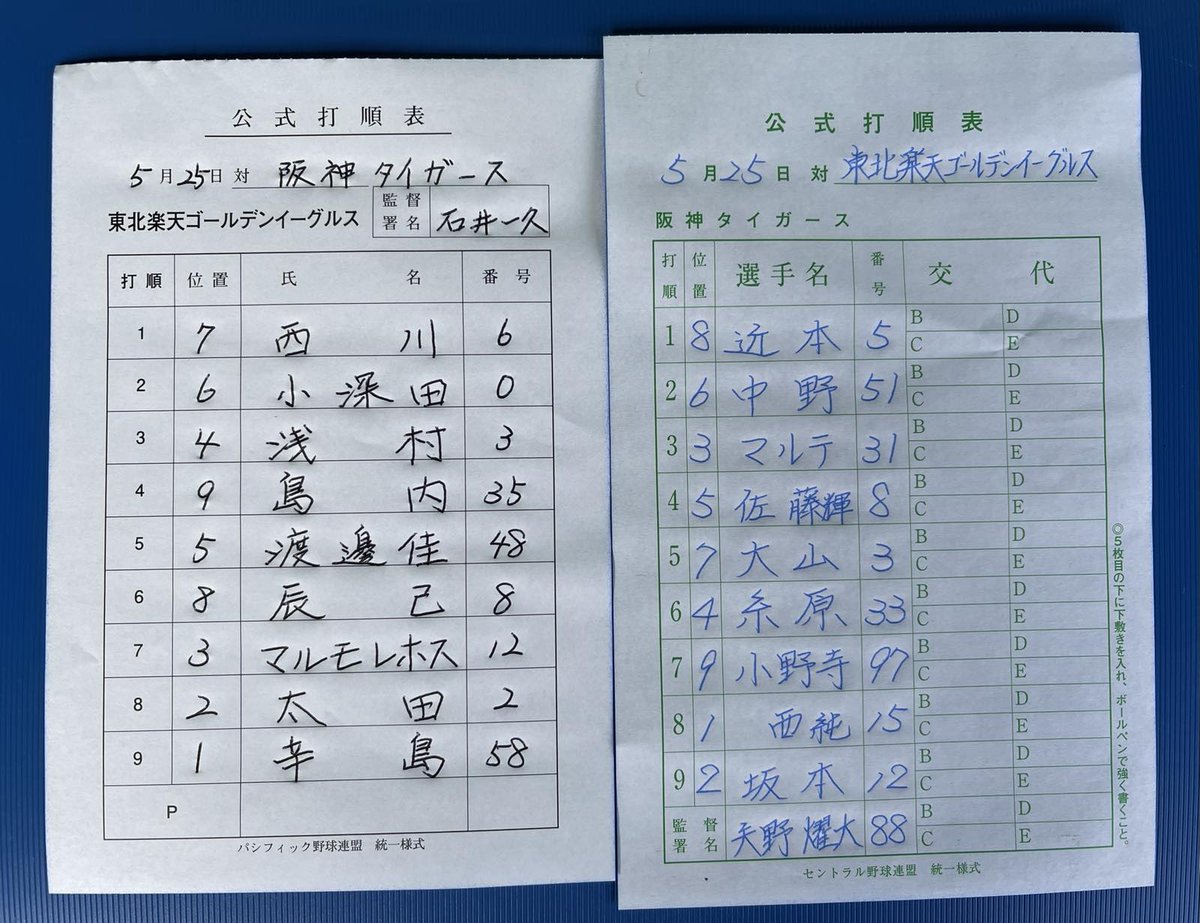 公式打順表
5月25日 対 阪神タイガース
東北楽天ゴールデンイーグルス 監督署名 石井一久
打順 位置 氏名 番号
1 7 西川 6
2 6 小深田 0
3 4 浅村 3
4 9 島内 35
5 5 渡邊佳 48
6 8 辰己 8
7 3 マルモレホス 12
8 2 太田 2
9 1 辛島 58
P
パシフィック野球連盟 統一様式
公式打順表
5月25日 対 東北楽天ゴールデンイーグルス
阪神タイガース
打順 位置 選手名 番号 交代
1 8 近本 5 B D
C E
2 6 中野 51 B D
C E
3 3 マルテ 31 B D
C E
4 5 佐藤輝 8 B D
C E
5 7 大山 3 B D
C E
6 4 糸原 33 B D
C E
7 9 小野寺 97 B D
C E
8 1 西純 15 B D
C E
9 2 坂本 12 B D
C E
監督署名 矢野燿大 88 B D
C E
セントラル野球連盟 統一様式
◎5枚目の下に下敷きを入れ、ボールペンで強く書くこと。